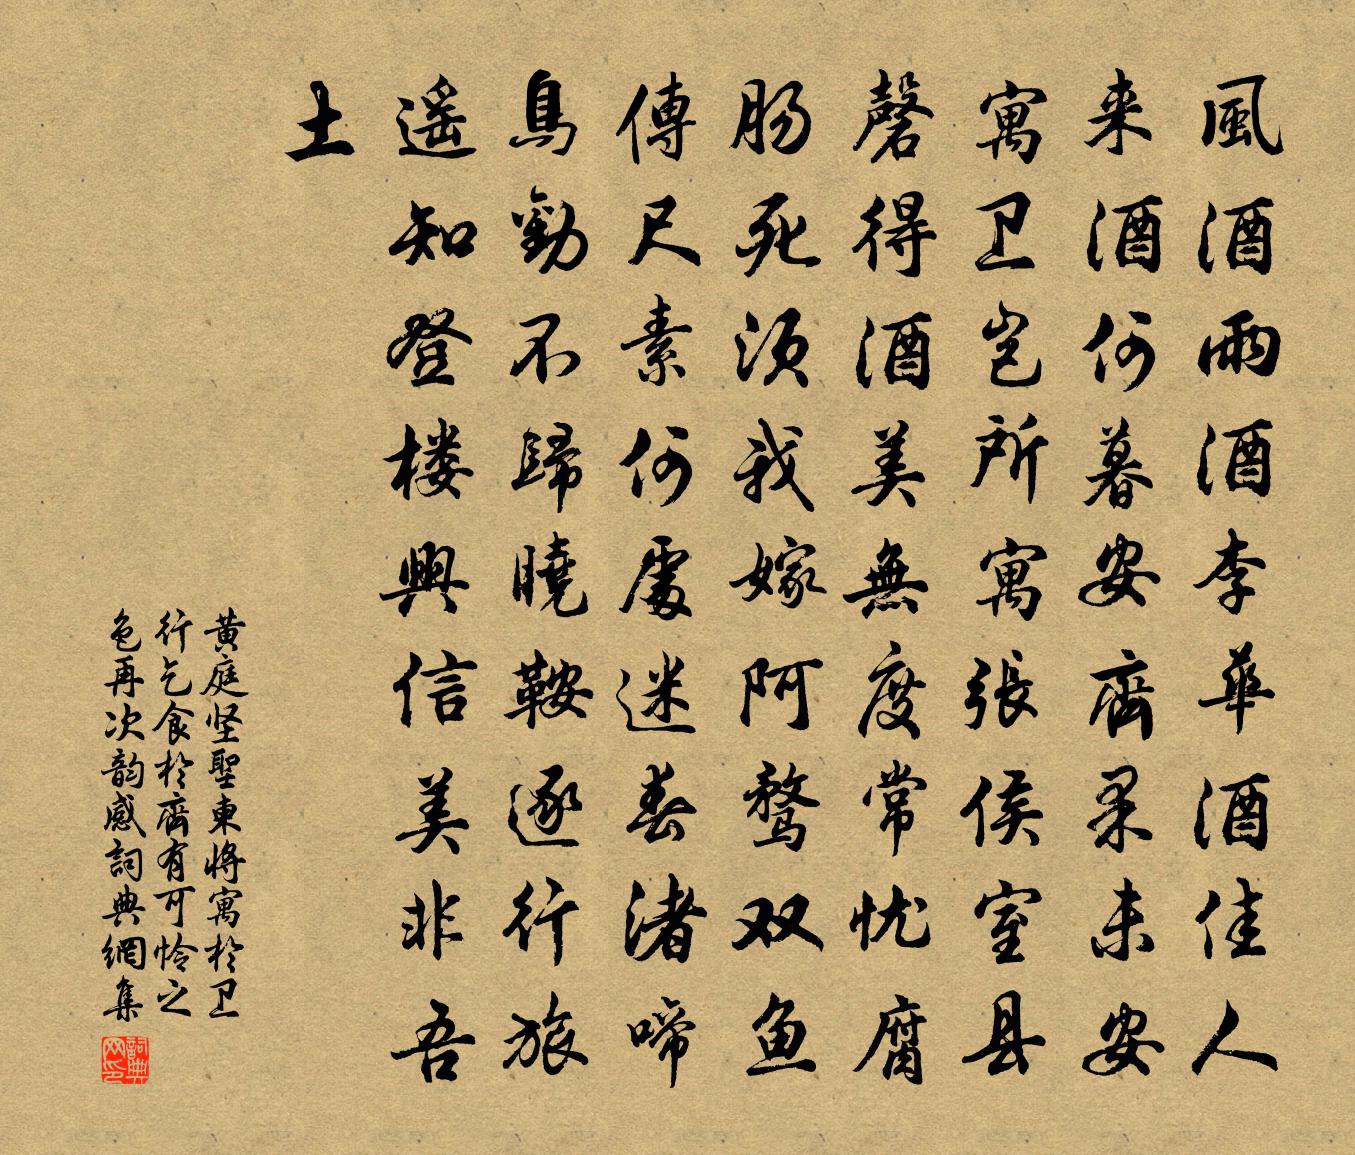 風酒雨酒李華酒佳人
来酒何暮安齊果未安
寓卫岂所寓張侯室县
罄得酒美無度常忧腐
肠死須我嫁阿鹜双鱼
傳尺素何處迷春渚啼
鳥勸不歸曉鞍逐行旅
遥知登楼興信美非吾
土
黄庭坚聖東將寓於卫
行乞食於齊有可怜之
色再次韵感詞典網集
詞典网印